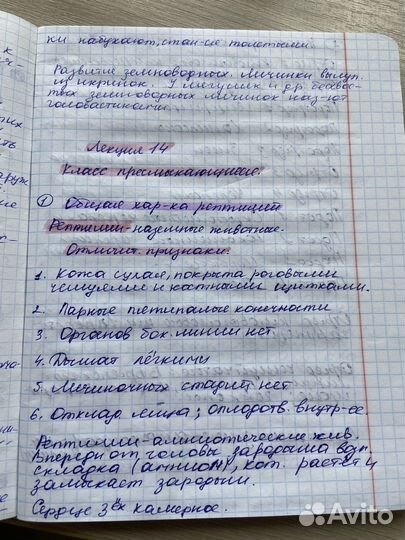 ки набухают, стан-ся толстыми.
Развитие земноводных. Личинки вылуп.
из икринок. У лягушек и др. бесхвос-
тых земноводных личинок наз-ют
головастиками.
Лекция 14
Класс пресмыкающиеся.
① Общая хар-ка рептилий
Рептилии - наземные животные.
Отличит. признаки:
1. Кожа сухая, покрыта роговыми
чешуями и костными щитками.
2. Парные пятипалые конечности
3. Органов бок. линии нет
4. Дышат лёгкими
5. Личиночных стадий нет
6. Отклад. яйца; оплодотв. внутр-ее.
Рептилии - амниотические жив.
Впереди от головы зародыша возн.
складка (амнион), кот. растёт и
замыкает зародыш.
Сердце 3ёх камерное.
Avito